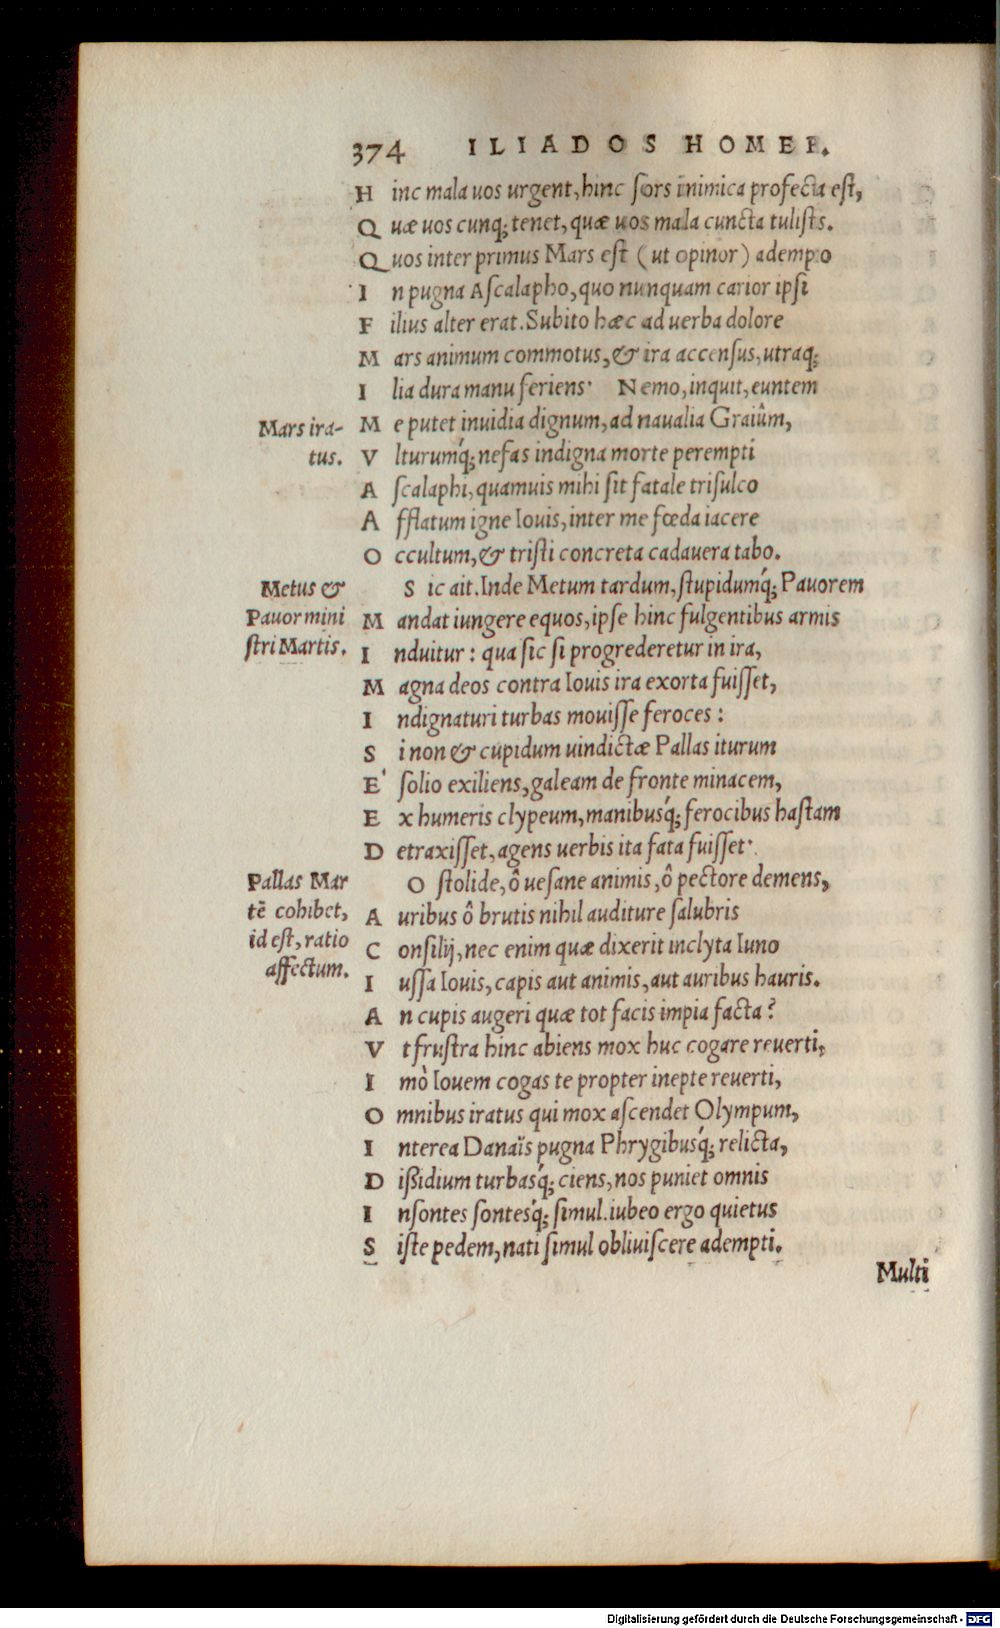 374 ILIADOS HOMER.
Hinc mala uos urgent, hinc ſors inimica profecta eſt,
Quæ uos cunq; tenet, quæ uos mala cuncta tuliſtis.
Quos inter primus Mars eſt (ut opinor) adempto
In pugna Aſcalapho, quo nunquam carior ipſi
Filius alter erat. Subito hæc ad uerba dolore
Mars animum commotus, & ira accenſus, utraq;
Ilia dura manu feriens· Nemo, inquit, euntem
Mars ira-
Me putet inuidia dignum, ad naualia Graiûm,
tus.
Vlturumq́; nefas indigna morte perempti
Aſcalaphi, quamuis mihi ſit fatale triſulco
Afflatum igne Iouis, inter me fœda iacere
Occultum, & triſti concreta cadauera tabo.
Metus &
Sic ait. Inde Metum tardum, ſtupidumq́; Pauorem
Pauor mini
Mandat iungere equos, ipſe hinc fulgentibus armis
ſtri Martis.
Induitur : qua ſic ſi progrederetur in ira,
Magna deos contra Iouis ira exorta fuiſſet,
Indignaturi turbas mouiſſe feroces :
Si non & cupidum uindictæ Pallas iturum
E' ſolio exiliens, galeam de fronte minacem,
Ex humeris clypeum, manibusq́; ferocibus haſtam
Detraxiſſet, agens uerbis ita fata fuiſſet·
Pallas Mar
O ſtolide, ô ueſane animis, ô pectore demens,
tē cohibet,
Auribus ô brutis nihil auditure ſalubris
id eſt, ratio
Conſilij, nec enim quæ dixerit inclyta Iuno
affectum.
Iuſſa Iouis, capis aut animis, aut auribus hauris.
An cupis augeri quæ tot facis impia facta?
Vt fruſtra hinc abiens mox huc cogare reuerti,
Imò Iouem cogas te propter inepte reuerti,
Omnibus iratus qui mox aſcendet Olympum,
Interea Danaïs pugna Phrygibusq́; relicta,
Dißidium turbasq́; ciens, nos puniet omnis
Inſontes ſontesq́; ſimul. iubeo ergo quietus
Siſte pedem, nati ſimul obliuiſcere adempti.
Multi
Digitalisierung gefördert durch die Deutsche Forschungsgemeinschaft - DFG